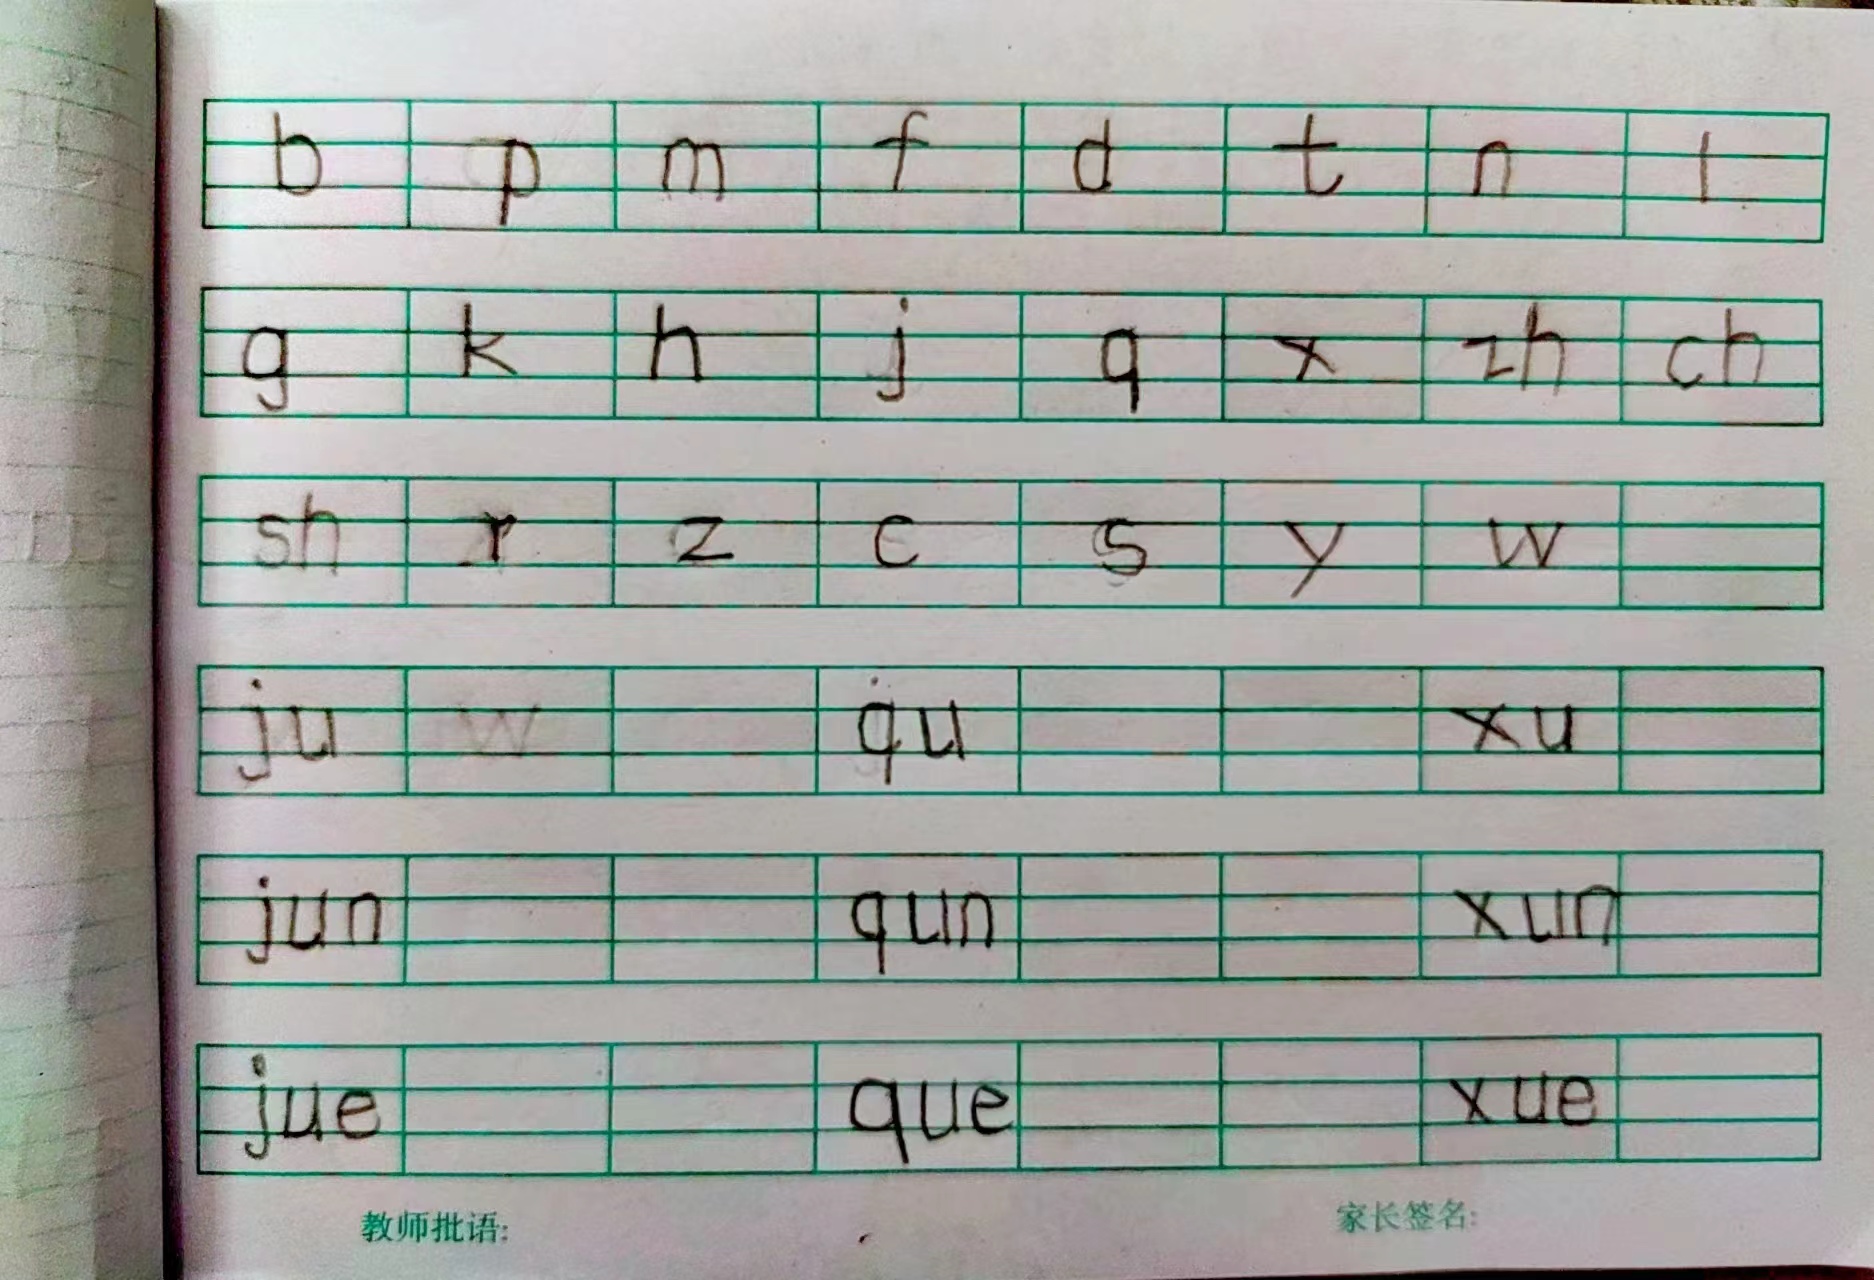 b p m f d t n l
g k h j q x zh ch
sh r z c s y w
ju w qu xu
jun qun xun
jue que xue
教师批语: 家长签名: